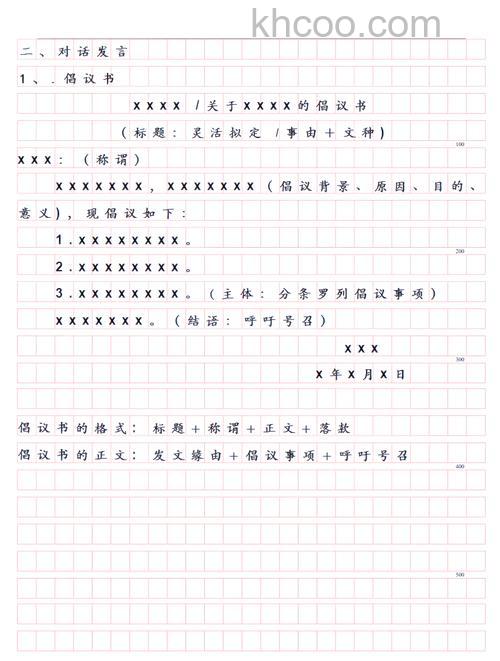 khcoo.com
二、对话发言
1、.倡议书
xxxx /关于xxxx的倡议书
(标题：灵活拟定 /事由+文种)
100
xxx：(称谓)
xxxxxxx，xxxxxxx(倡议背景、原因、目的、
意义)，现倡议如下：
1.xxxxxxxx。
200
2.xxxxxxxx。
3.xxxxxxxx。(主体：分条罗列倡议事项)
xxxxxxx。(结语：呼吁号召)
xxx
300
x年x月x日
倡议书的格式：标题+称谓+正文+落款
倡议书的正文：发文缘由+倡议事项+呼吁号召
400
500